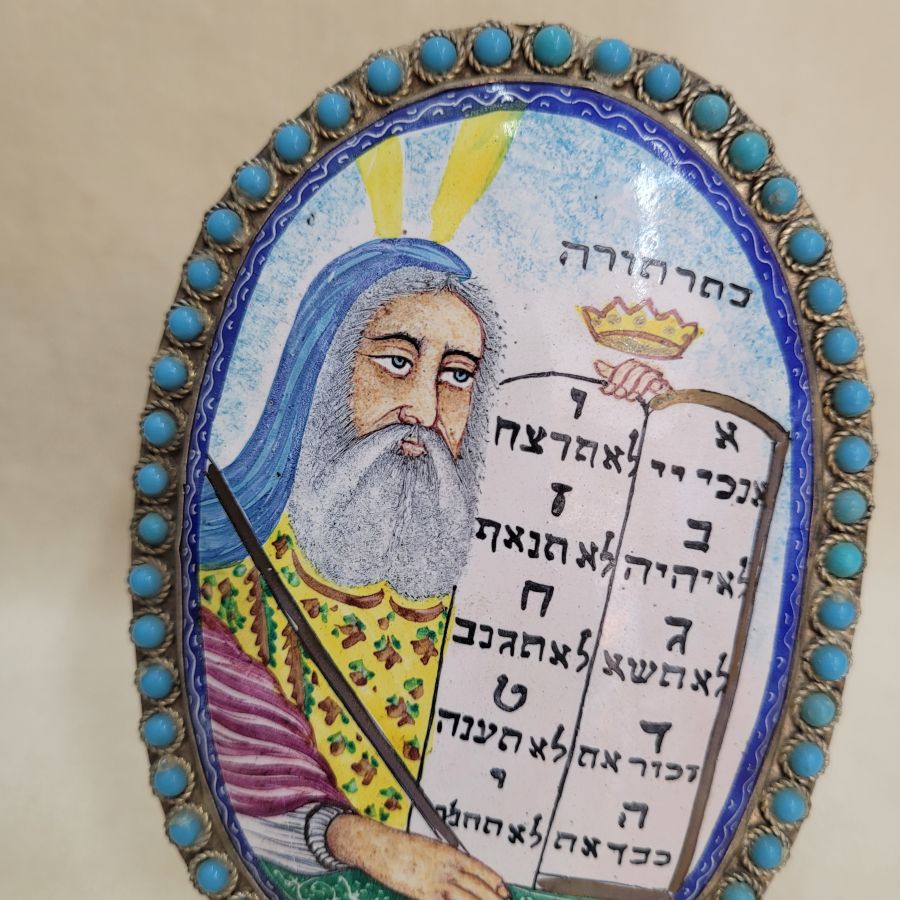 כתר תורה
א
אנכי יי
ב
לא יהיה
ג
לא תשא
ד
זכור את
ה
כבד את
ו
לא תרצח
ז
לא תנאף
ח
לא תגנב
ט
לא תענה
י
לא